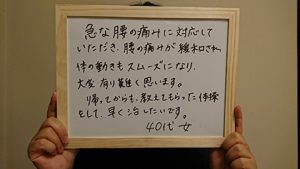 急な腰の痛みに対応して
いただき、腰の痛みが緩和され
体の動きもスムーズになり、
大変有り難く思います。
帰ってからも、教えてもらった体操
をして、早く治したいです。
40代 女